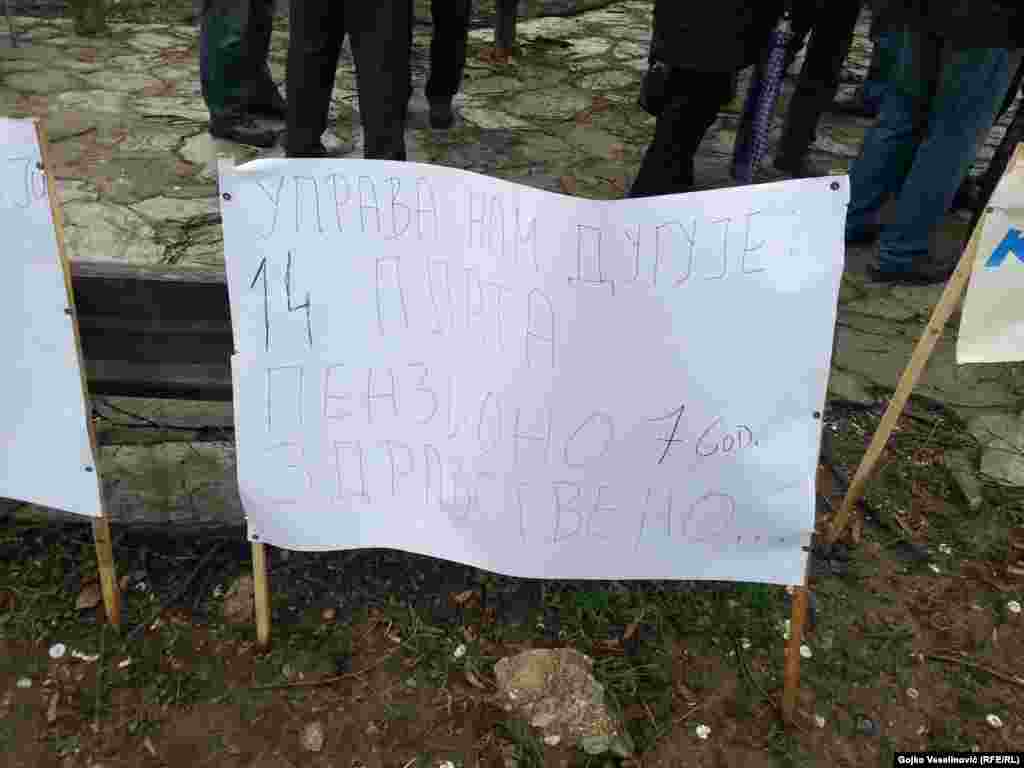 УПРАВА НАМ ДУГУЈЕ:
14 ПЛАТА
ПЕНЗИОНО 7 GOD.
ЗДРАВСТВЕНО...
Gojko Veselinović (RFE/RL)